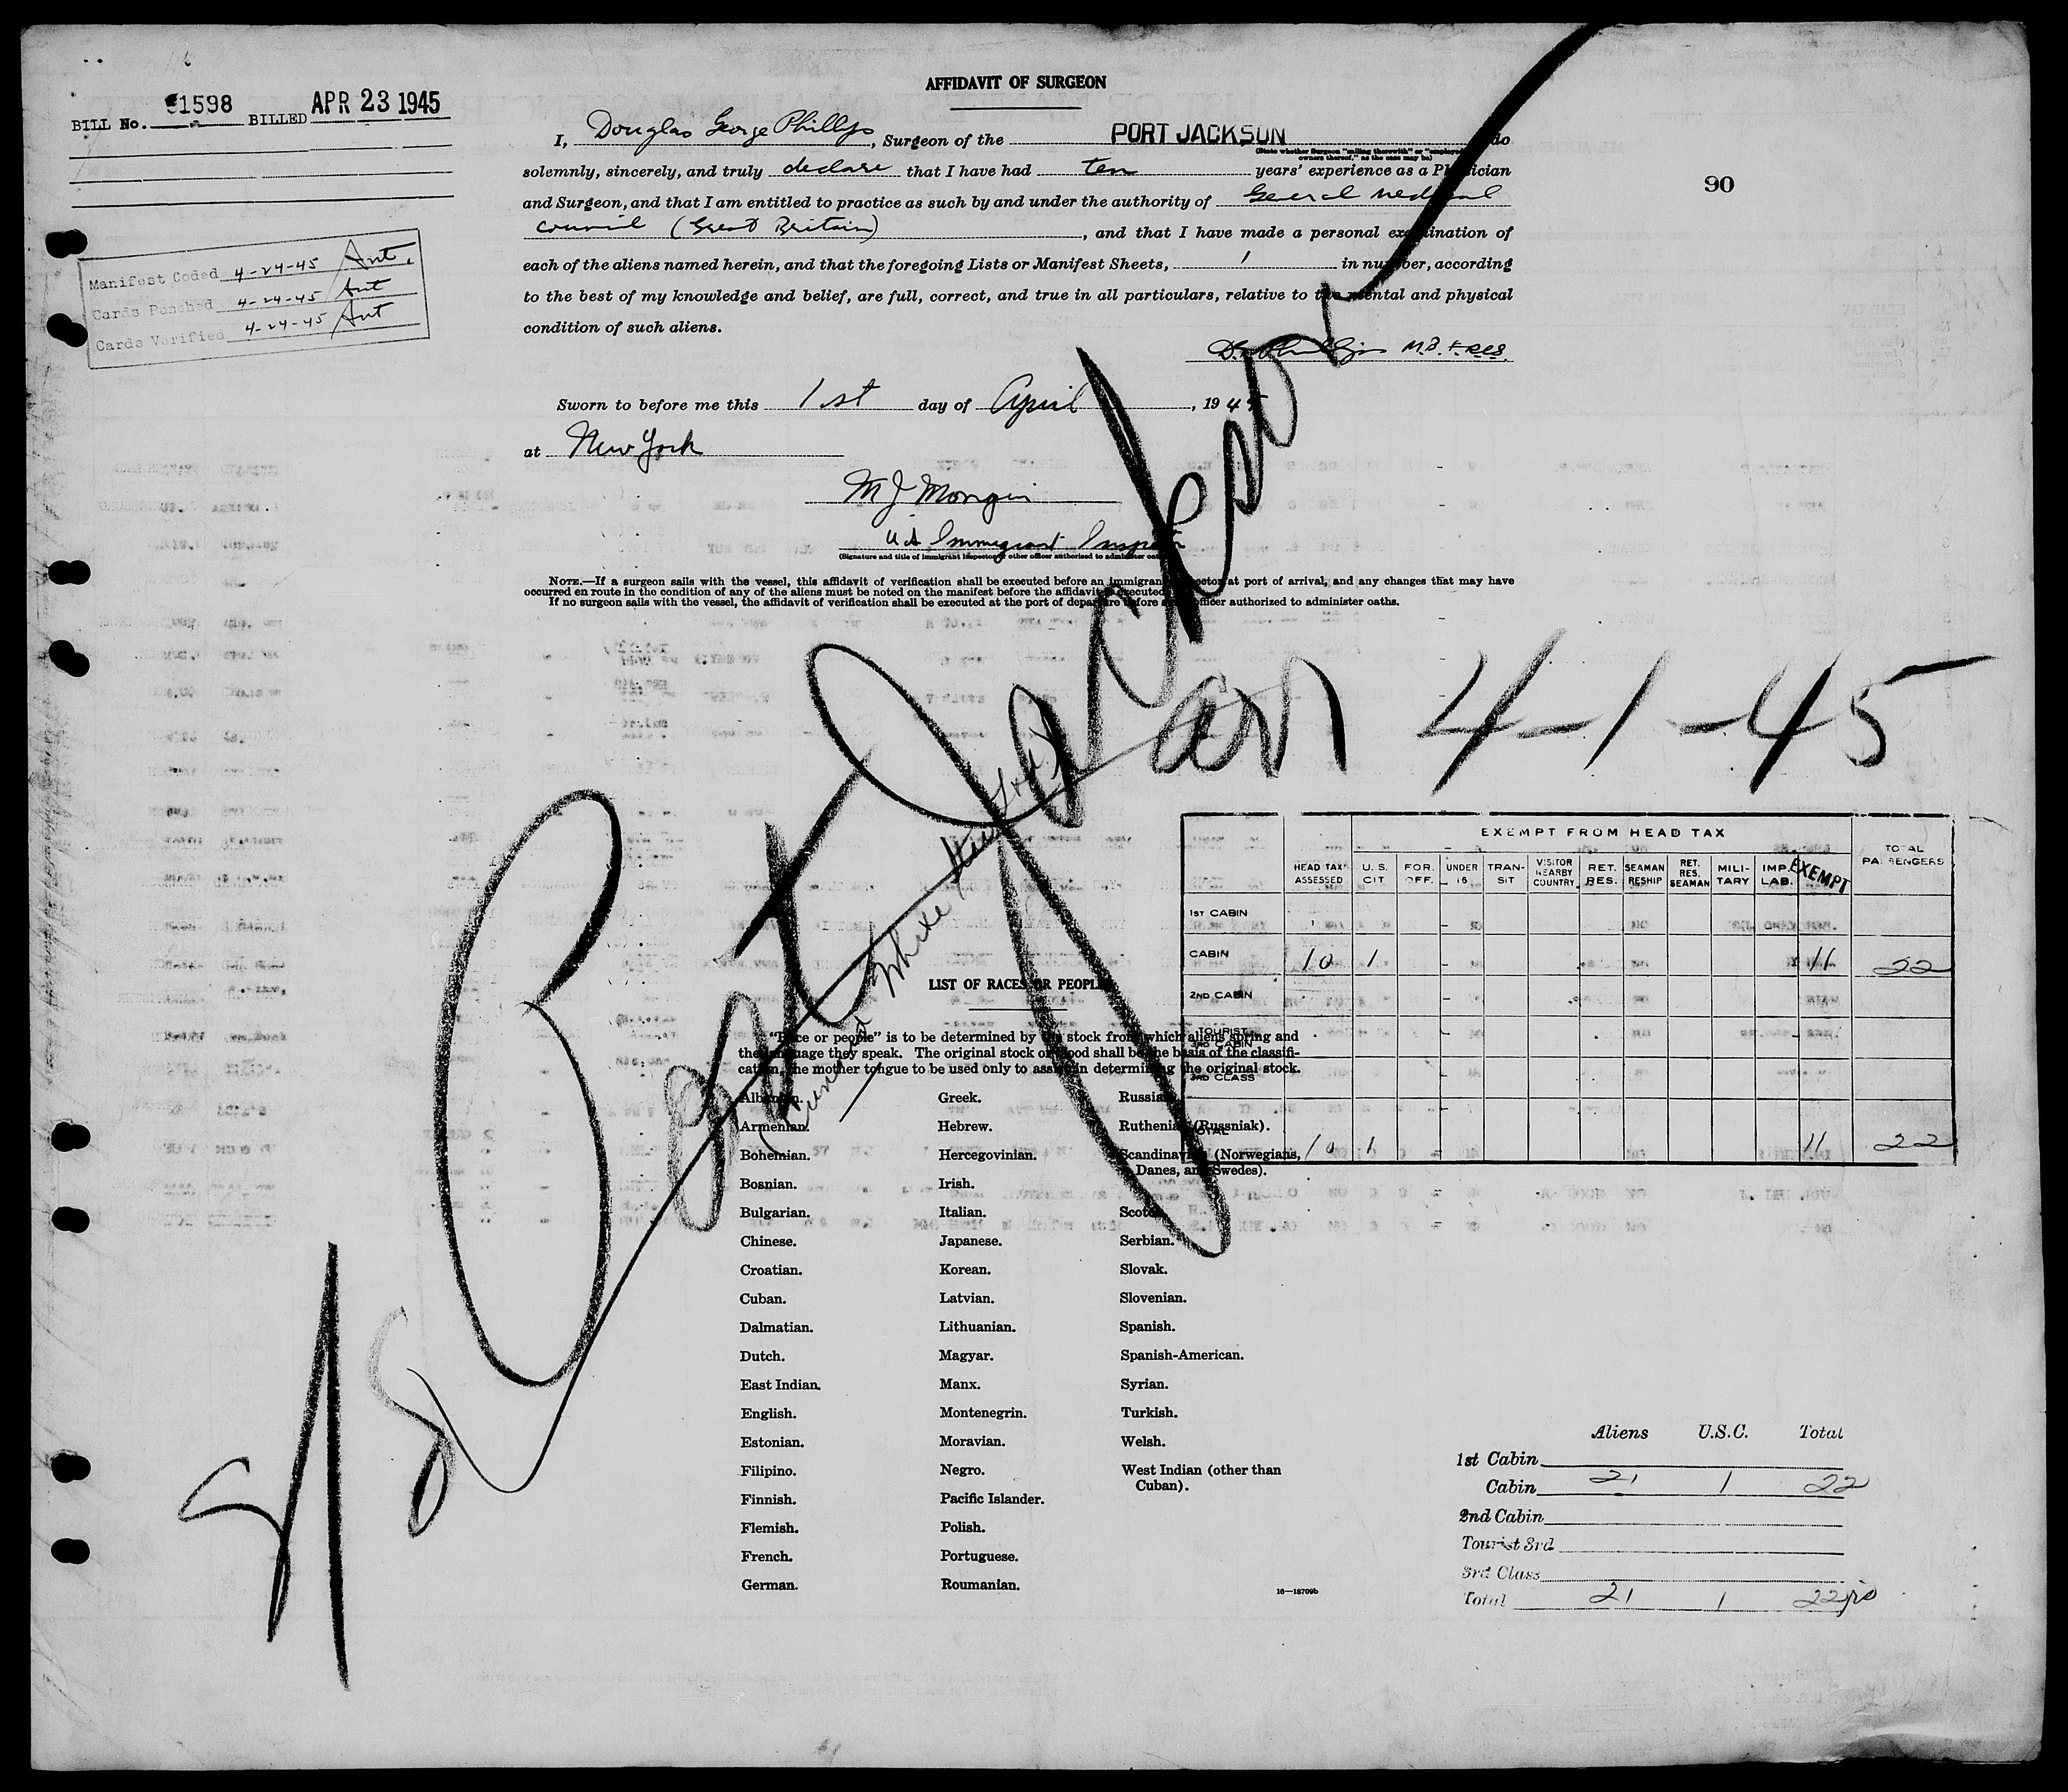 AFFIDAVIT OF SURGEON
BILL No. 1598 BILLED APR 23 1945
I, Douglas George Phillips, Surgeon of the PORT JACKSON do
(State whether Surgeon "sailing therewith" or "employed owners thereof," as the case may be)
solemnly, sincerely, and truly declare that I have had ten years' experience as a Physician
90
and Surgeon, and that I am entitled to practice as such by and under the authority of General Medical
Council (Great Britain), and that I have made a personal examination of
each of the aliens named herein, and that the foregoing Lists or Manifest Sheets, 1 in number, according
to the best of my knowledge and belief, are full, correct, and true in all particulars, relative to the mental and physical
condition of such aliens.
Manifest Coded 4-24-45
Cards Punched 4-24-45
Cards Verified 4-24-45
Phillips M.B. F.R.C.S.
Sworn to before me this 1st day of April, 1945
at New York
M J
US Immigrant Inspector
(Signature and title of immigrant inspector or other officer authorized to administer oaths)
NOTE.—If a surgeon sails with the vessel, this affidavit of verification shall be executed before an immigrant inspector at port of arrival, and any changes that may have
occurred en route in the condition of any of the aliens must be noted on the manifest before the affidavit is executed.
If no surgeon sails with the vessel, the affidavit of verification shall be executed at the port of departure before an officer authorized to administer oaths.
SS Port Jackson
arr 4-1-45
EXEMPT FROM HEAD TAX
HEAD TAX ASSESSED U.S. CIT. FOR. OFF. UNDER 16 TRANSIT VISITOR NEARBY COUNTRY RET. RES. SEAMAN RESHIP RET. RES. SEAMAN MILITARY IMP. LAB. EXEMPT TOTAL PASSENGERS
1ST CABIN
CABIN 10 1 11 22
2ND CABIN
TOURIST 3RD CABIN
3RD CLASS
TOTAL 10 1 11 22
LIST OF RACES OR PEOPLES
"Race or people" is to be determined by the stock from which aliens spring and
the language they speak. The original stock or blood shall be the basis of the classifi-
cation, the mother tongue to be used only to assist in determining the original stock.
Albanian. Greek. Russian.
Armenian. Hebrew. Ruthenian (Russniak).
Bohemian. Hercegovinian. Scandinavian (Norwegians,
Danes, and Swedes).
Bosnian. Irish.
Bulgarian. Italian. Scotch.
Chinese. Japanese. Serbian.
Croatian. Korean. Slovak.
Cuban. Latvian. Slovenian.
Dalmatian. Lithuanian. Spanish.
Dutch. Magyar. Spanish-American.
East Indian. Manx. Syrian.
English. Montenegrin. Turkish.
Estonian. Moravian. Welsh.
Filipino. Negro. West Indian (other than
Cuban).
Finnish. Pacific Islander.
Flemish. Polish.
French. Portuguese.
German. Roumanian.
16—18709b
Aliens U.S.C. Total
1st Cabin
Cabin 21 1 22
2nd Cabin
Tourist 3rd
3rd Class
Total 21 1 22